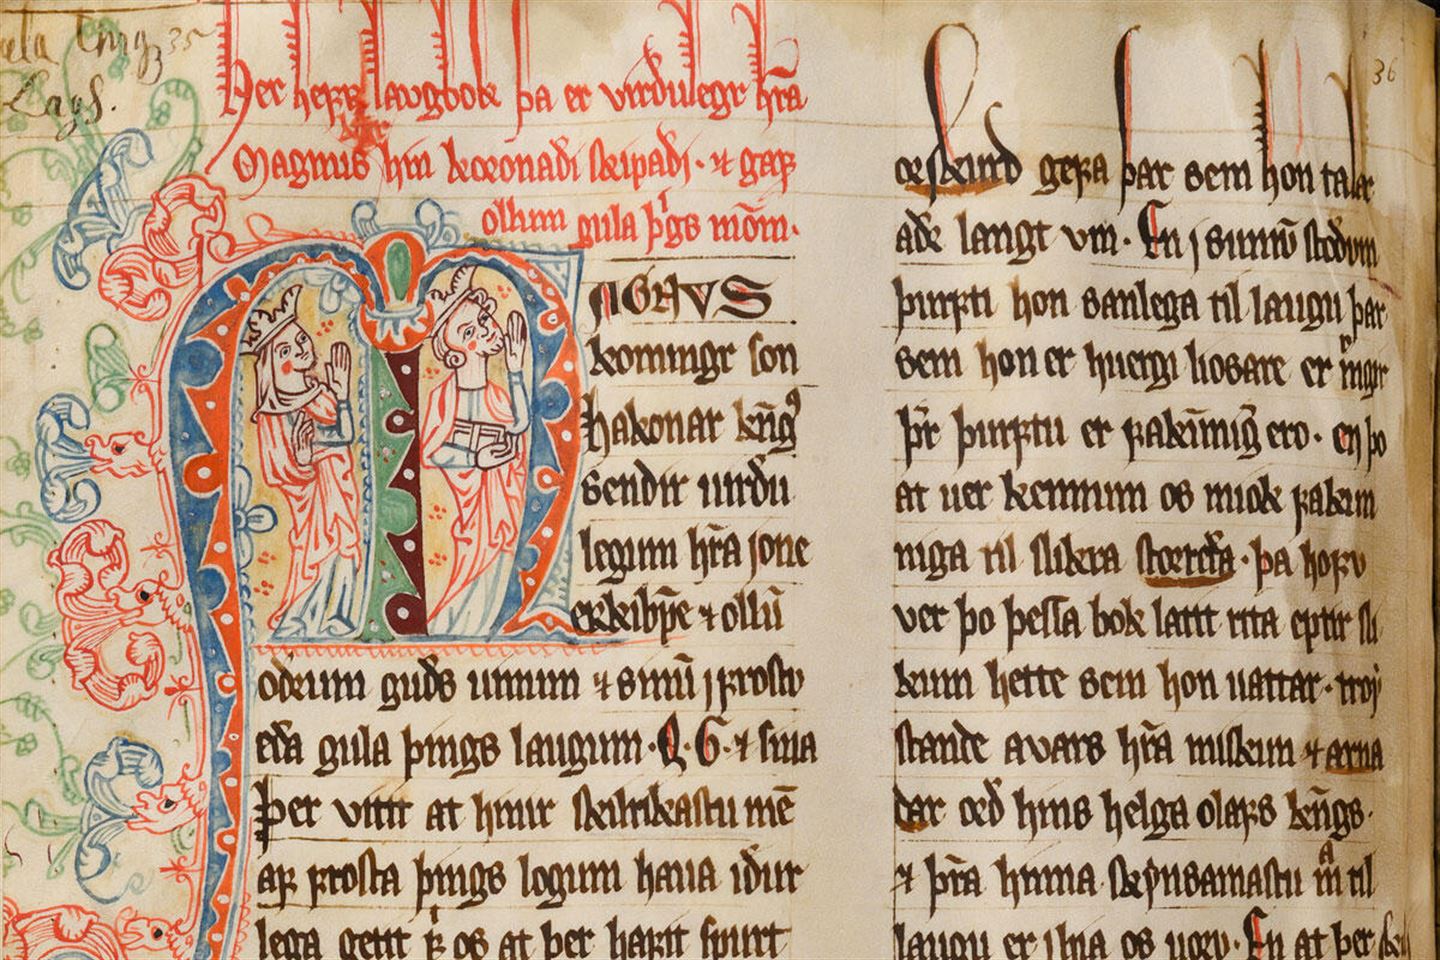 35
Lags.
Her hefr laugbok þa er virðulegr hr̅a
Magnus hin koronaði skipaði · ⁊ gaf
ollum gula þı̅gs mo̅m·
AGNVS
konungr son
hakonar kn̅gˢ
sendir uirðu
legum hr̅a jone
erkibp̅e ⁊ ollu̅
oðrum guðs uinum ⁊ sinu̅ j frosto
eða gula þings laugum · Q · G · ⁊ sina
Þer vitit at hinir skilrikastu me̅
af frosta þings logum haua iður
lega getit f̅ os at þer hafit spurt
36
or skurd gera þar sem hon talar
aðr langt vm · En j sumu̅ stoðum
þurfti hon sanlega til laugu þar
sem hon er huergi liosare er
þr̅ þurftu er fakunnig ero · en þo
at uer kennum os miok fakun
niga til slikra storræða · þa hofu
ver þo þessa bok latit rita eptir sli
kum hette sem hon uattar · troy
stande a vars hr̅a miskun ⁊ arna
dar orð hins helga olafs kn̅gs ·
⁊ þr̅a hinna skynsamastu m̅a til
laugu er ilna os uoru · En at þer